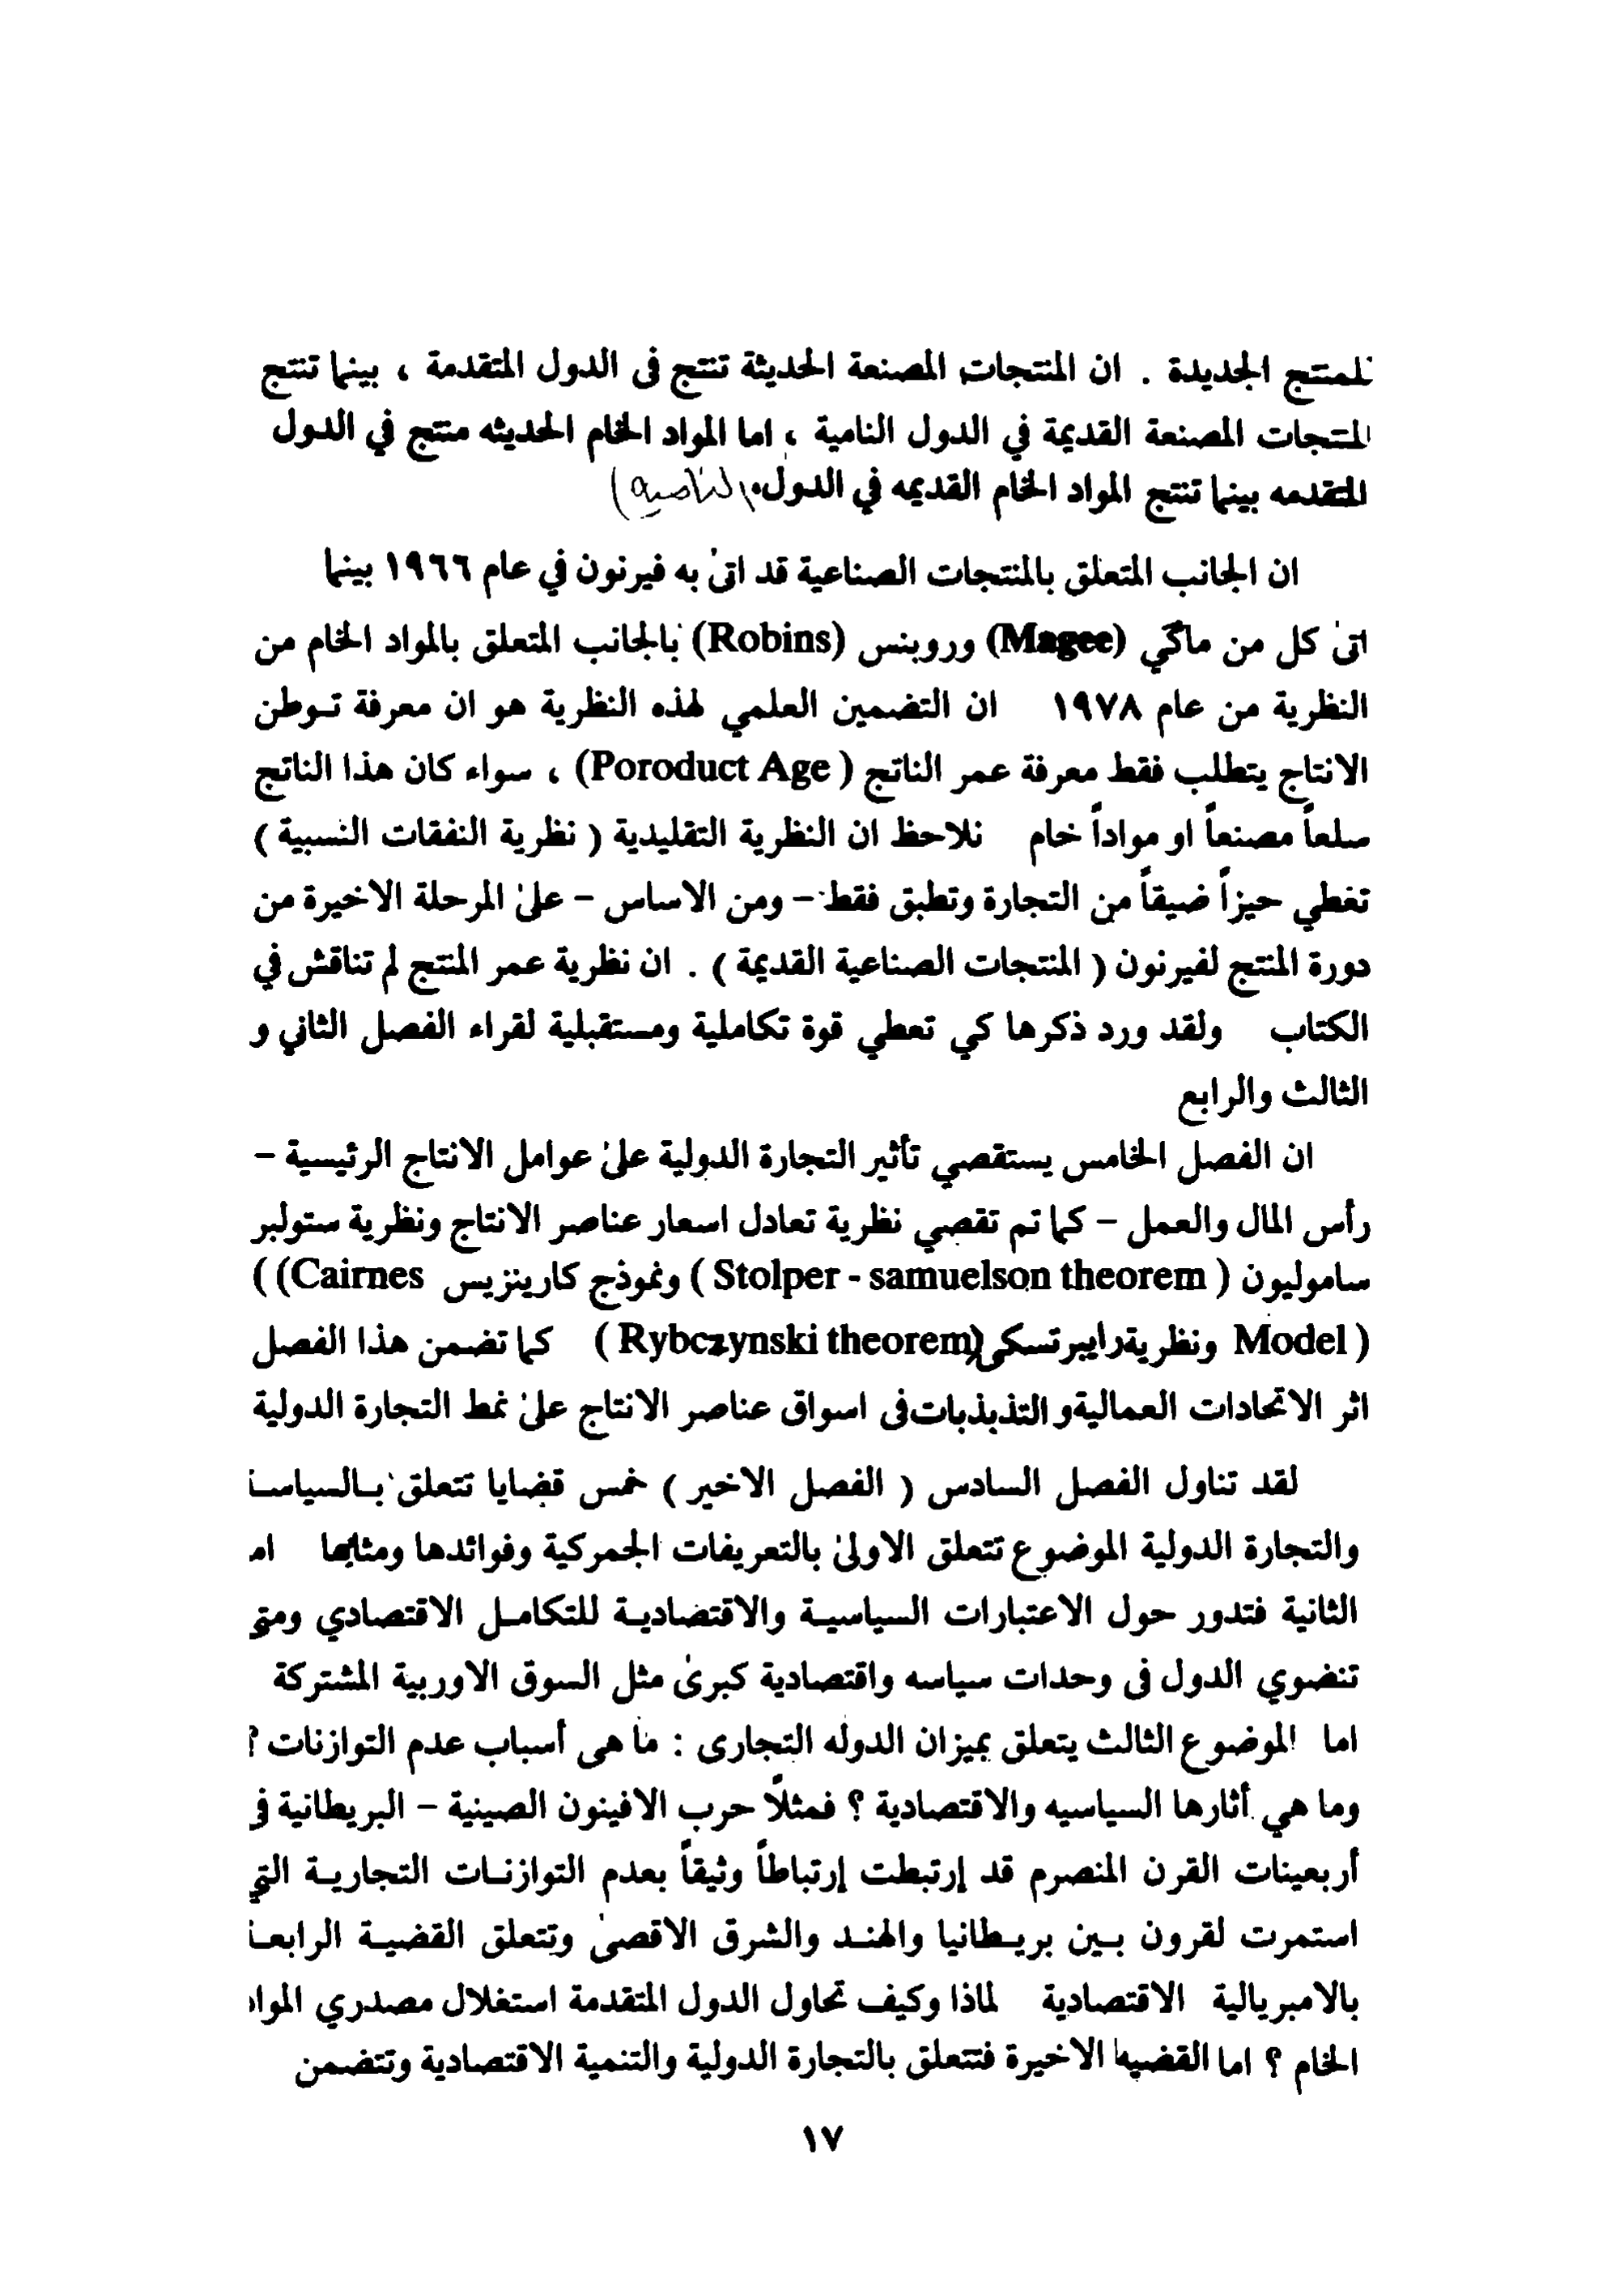 للمنتج الجديدة . ان المنتجات المصنعة الحديثة تنتج في الدول المتقدمة ، بينما تنتج
المنتجات المصنعة القديمة في الدول النامية ، اما المواد الخام الحديثه منتج في الدول
المتقدمه بينما تنتج المواد الخام القديمه في الدول. (الناميه)
ان الجانب المتعلق بالمنتجات الصناعية قد اتىٰ به فيرنون في عام ١٩٦٦ بينما
اتىٰ كل من ماكي (Magee) وروبنس (Robins) بالجانب المتعلق بالمواد الخام من
النظرية من عام ١٩٧٨ ان التضمين العلمي لهذه النظرية هو ان معرفة توطن
الانتاج يتطلب فقط معرفة عمر الناتج ( Poroduct Age) ، سواء كان هذا الناتج
سلعاً مصنعاً او مواداً خام نلاحظ ان النظرية التقليدية ( نظرية النفقات النسبية )
تغطي حيزاً ضيقاً من التجارة وتطبق فقط - ومن الاساس - علىٰ المرحلة الاخيرة من
دورة المنتج لفيرنون ( المنتجات الصناعية القديمة ) . ان نظرية عمر المنتج لم تناقش في
الكتاب ولقد ورد ذكرها كي تعطي قوة تكاملية ومستقبلية لقراء الفصل الثاني و
الثالث والرابع
ان الفصل الخامس يستقصي تأثير التجارة الدولية علىٰ عوامل الانتاج الرئيسية -
رأس المال والعمل - كما تم تقصي نظرية تعادل اسعار عناصر الانتاج ونظرية ستولبر
ساموليون ( Stolper - samuelson theorem ) ونموذج كارينزيس Cairnes) )
( Model ونظرية رايبرتسكي (Rybczynski theorem ) كما تضمن هذا الفصل
اثر الاتحادات العمالية و التذبذبات في اسواق عناصر الانتاج علىٰ نمط التجارة الدولية
لقد تناول الفصل السادس ( الفصل الاخير ) خمس قضايا تتعلق بالسياسة
والتجارة الدولية الموضوع تتعلق الاولىٰ بالتعريفات الجمركية وفوائدها ومثالبها اما
الثانية فتدور حول الاعتبارات السياسية والاقتصادية للتكامل الاقتصادي ومتى
تنضوي الدول في وحدات سياسه واقتصادية كبرىٰ مثل السوق الاوربية المشتركة
اما الموضوع الثالث يتعلق بميزان الدوله التجارى : ما هى أسباب عدم التوازنات ؟
وما هي أثارها السياسيه والاقتصادية ؟ فمثلاً حرب الافينون الصينية - البريطانية في
أربعينات القرن المنصرم قد إرتبطت إرتباطاً وثيقاً بعدم التوازنات التجارية التي
استمرت لقرون بين بريطانيا والهند والشرق الاقصىٰ وتتعلق القضية الرابعة
بالامبريالية الاقتصادية لماذا وكيف تحاول الدول المتقدمة استغلال مصدري المواد
الخام ؟ اما القضيه الاخيرة فتتعلق بالتجارة الدولية والتنمية الاقتصادية وتتضمن
١٧